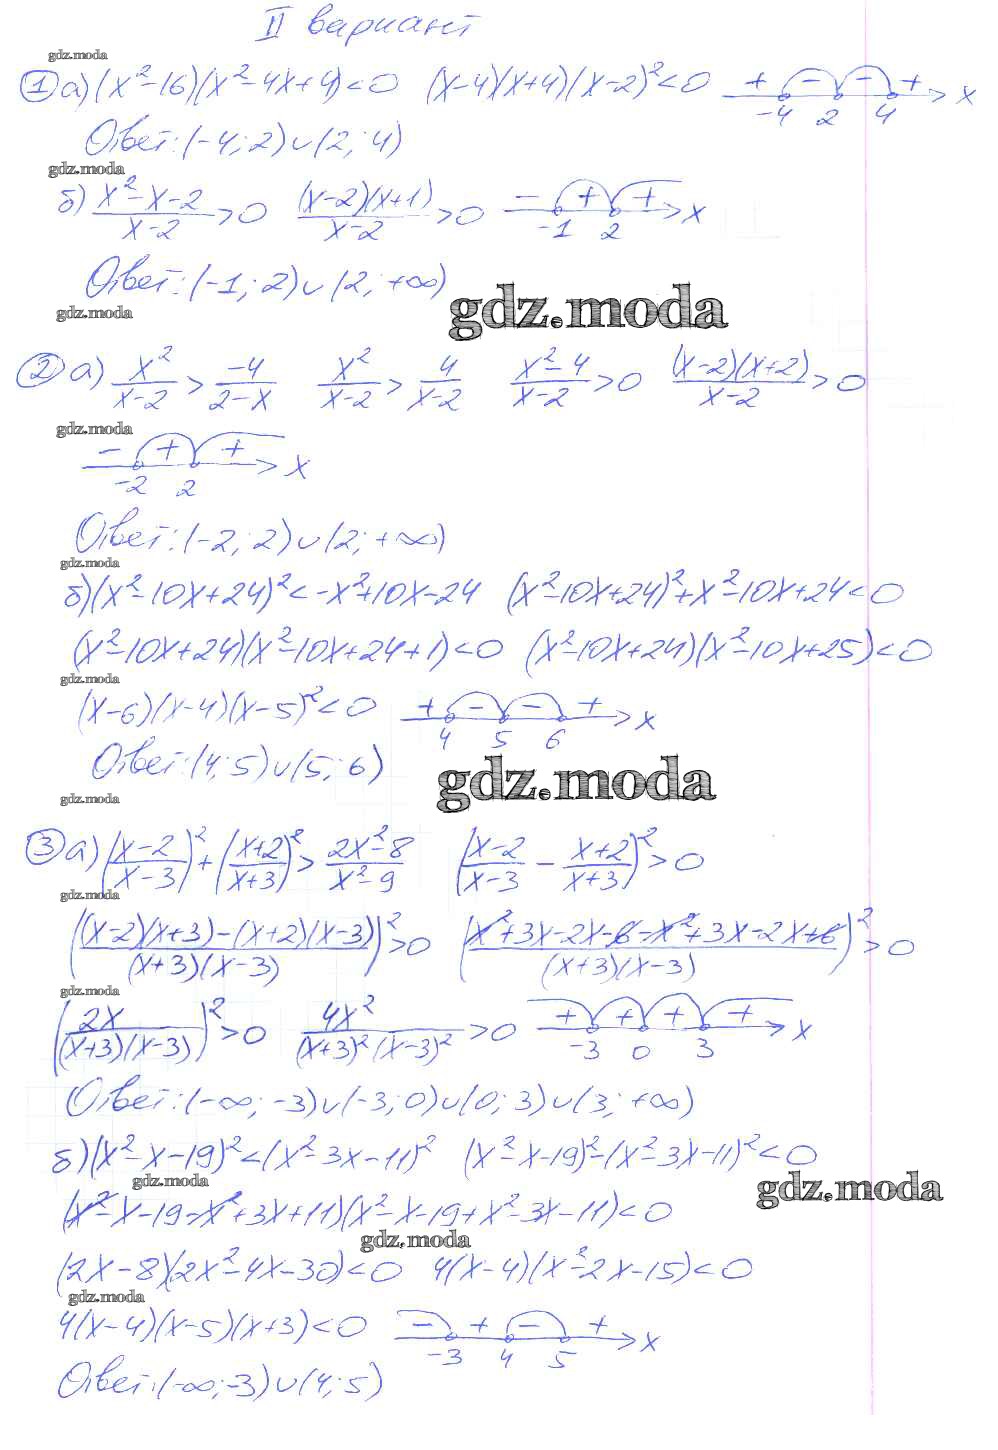 II вариант
gdz.moda
① а) (x²-16)(x²-4x+4)<0 (x-4)(x+4)(x-2)²<0 + - - + x
-4 2 4
Ответ: (-4; 2)∪(2; 4)
gdz.moda
б) (x²-x-2)/(x-2)>0 ((x-2)(x+1))/(x-2)>0 - + + x
-1 2
Ответ: (-1; 2)∪(2; +∞)
gdz.moda
gdz.moda
② а) x²/(x-2) > -4/(2-x) x²/(x-2) > 4/(x-2) (x²-4)/(x-2)>0 ((x-2)(x+2))/(x-2)>0
gdz.moda
- + + x
-2 2
Ответ: (-2; 2)∪(2; +∞)
gdz.moda
б) (x²-10x+24)²<-x²+10x-24 (x²-10x+24)²+x²-10x+24<0
(x²-10x+24)(x²-10x+24+1)<0 (x²-10x+24)(x²-10x+25)<0
gdz.moda
(x-6)(x-4)(x-5)²<0 + - - + x
4 5 6
Ответ: (4; 5)∪(5; 6)
gdz.moda
gdz.moda
③ а) ((x-2)/(x-3))²+((x+2)/(x+3))²>(2x²-8)/(x²-9) ((x-2)/(x-3) - (x+2)/(x+3))²>0
gdz.moda
(((x-2)(x+3)-(x+2)(x-3))/((x+3)(x-3)))²>0 ((x²+3x-2x-6-x²+3x-2x+6)/((x+3)(x-3)))²>0
gdz.moda
(2x/((x+3)(x-3)))²>0 4x²/((x+3)²(x-3)²)>0 + + + + x
-3 0 3
Ответ: (-∞; -3)∪(-3; 0)∪(0; 3)∪(3; +∞)
б) (x²-x-19)²<(x²-3x-11)² (x²-x-19)²-(x²-3x-11)²<0
gdz.moda
gdz.moda
(x²-x-19-x²+3x+11)(x²-x-19+x²-3x-11)<0
gdz.moda
(2x-8)(2x²-4x-30)<0 4(x-4)(x²-2x-15)<0
gdz.moda
4(x-4)(x-5)(x+3)<0 - + - + x
-3 4 5
Ответ: (-∞; -3)∪(4; 5)